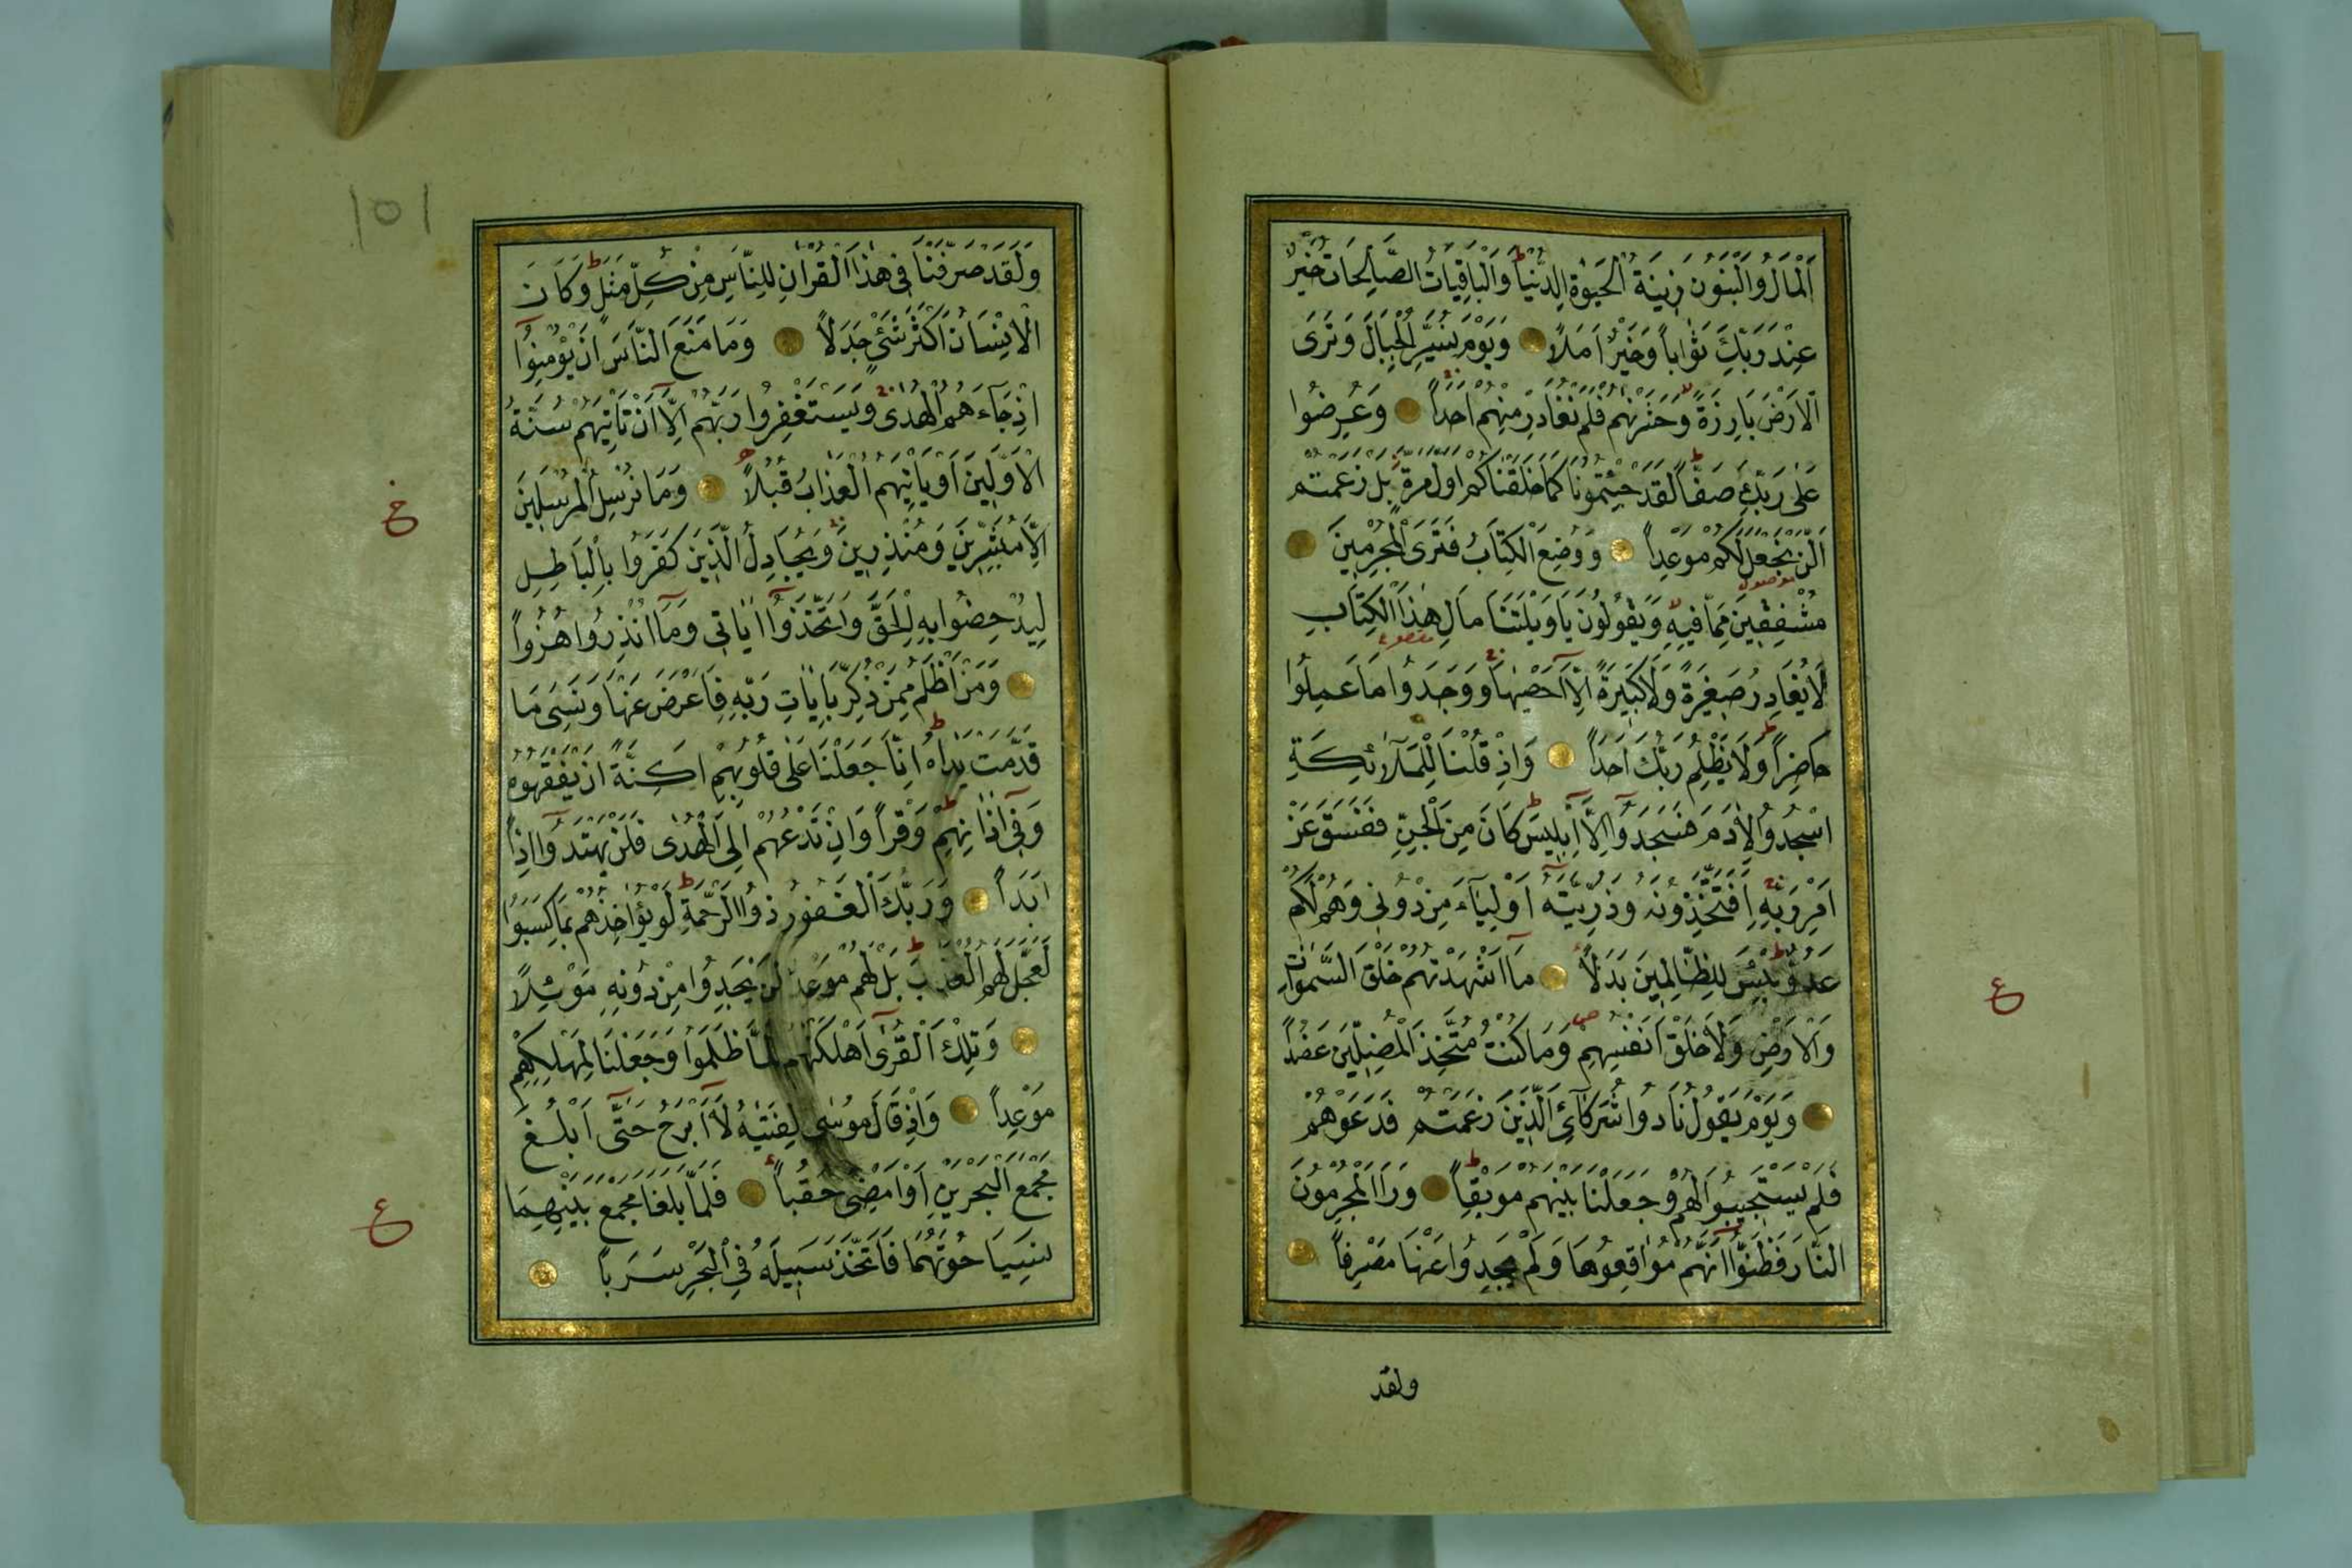 اَلْمَالُ وَالْبَنُونَ زِينَةُ الْحَيٰوةِ الدُّنْيَا ط وَالْبَاقِيَاتُ الصَّالِحَاتُ خَيْرٌ
عِنْدَ رَبِّكَ ثَوَاباً وَخَيْرٌ اَمَلاً وَيَوْمَ نُسَيِّرُ الْجِبَالَ وَتَرَى
الْاَرْضَ بَارِزَةً لا وَحَشَرْنٰهُمْ فَلَمْ نُغَادِرْ مِنْهُمْ اَحَداً وَعُرِضُوا
عَلٰى رَبِّكَ صَفّاً ط لَقَدْ جِئْتُمُونَا كَمَا خَلَقْنَاكُمْ اَوَّلَ مَرَّةٍ بَلْ زَعَمْتُمْ
اَلَّنْ نَجْعَلَ لَكُمْ مَوْعِداً وَوُضِعَ الْكِتَابُ فَتَرَى الْمُجْرِمِينَ
موصول
مُشْفِقِينَ مِمَّا فِيهِ وَيَقُولُونَ يَا وَيْلَتَنَا مَالِ هٰذَا الْكِتَابِ
مقطوع
لَا يُغَادِرُ صَغِيرَةً وَلَا كَبِيرَةً اِلَّا اَحْصٰيهَا وَوَجَدُوا مَا عَمِلُوا
حَاضِراً ط وَلَا يَظْلِمُ رَبُّكَ اَحَداً وَاِذْ قُلْنَا لِلْمَلٰٓائِكَةِ
اسْجُدُوا لِاٰدَمَ فَسَجَدُٓوا اِلَّٓا اِبْلِيسَ ط كَانَ مِنَ الْجِنِّ فَفَسَقَ عَنْ
اَمْرِ رَبِّهِ اَفَتَتَّخِذُونَهُ وَذُرِّيَّتَهُٓ اَوْلِيَٓاءَ مِنْ دُونِي وَهُمْ لَكُمْ
عَدُوٌّ ط بِئْسَ لِلظَّالِمِينَ بَدَلاً مَٓا اَشْهَدْتُهُمْ خَلْقَ السَّمٰوَاتِ
وَالْاَرْضِ وَلَا خَلْقَ اَنْفُسِهِمْ ص وَمَا كُنْتُ مُتَّخِذَ الْمُضِلِّينَ عَضُداً
وَيَوْمَ يَقُولُ نَادُوا شُرَكَٓائِيَ الَّذِينَ زَعَمْتُمْ فَدَعَوْهُمْ
فَلَمْ يَسْتَجِيبُوا لَهُمْ وَجَعَلْنَا بَيْنَهُمْ مَوْبِقاً ط وَرَاَ الْمُجْرِمُونَ
النَّارَ فَظَنُّٓوا اَنَّهُمْ مُوَاقِعُوهَا وَلَمْ يَجِدُوا عَنْهَا مَصْرِفاً
ع
ولقد
١٥١
وَلَقَدْ صَرَّفْنَا فِي هٰذَا الْقُرْاٰنِ لِلنَّاسِ مِنْ كُلِّ مَثَلٍ ط وَكَانَ
الْاِنْسَانُ اَكْثَرَ شَيْءٍ جَدَلاً وَمَا مَنَعَ النَّاسَ اَنْ يُؤْمِنُٓوا
اِذْ جَٓاءَهُمُ الْهُدٰى وَيَسْتَغْفِرُوا رَبَّهُمْ اِلَّٓا اَنْ تَأْتِيَهُمْ سُنَّةُ
الْاَوَّلِينَ اَوْ يَأْتِيَهُمُ الْعَذَابُ قُبُلاً وَمَا نُرْسِلُ الْمُرْسَلِينَ
اِلَّا مُبَشِّرِينَ وَمُنْذِرِينَ وَيُجَادِلُ الَّذِينَ كَفَرُوا بِالْبَاطِلِ
لِيُدْحِضُوا بِهِ الْحَقَّ وَاتَّخَذُٓوا اٰيَاتِي وَمَٓا اُنْذِرُوا هُزُواً
وَمَنْ اَظْلَمُ مِمَّنْ ذُكِّرَ بِاٰيَاتِ رَبِّهِ فَاَعْرَضَ عَنْهَا وَنَسِيَ مَا
قَدَّمَتْ يَدَاهُ ط اِنَّا جَعَلْنَا عَلٰى قُلُوبِهِمْ اَكِنَّةً اَنْ يَفْقَهُوهُ
وَفِٓي اٰذَانِهِمْ وَقْراً ط وَاِنْ تَدْعُهُمْ اِلَى الْهُدٰى فَلَنْ يَهْتَدُٓوا اِذاً
اَبَداً وَرَبُّكَ الْغَفُورُ ذُو الرَّحْمَةِ ط لَوْ يُؤَاخِذُهُمْ بِمَا كَسَبُوا
لَعَجَّلَ لَهُمُ الْعَذَابَ ط بَلْ لَهُمْ مَوْعِدٌ لَنْ يَجِدُوا مِنْ دُونِهِ مَوْئِلاً
وَتِلْكَ الْقُرٰٓى اَهْلَكْنَاهُمْ لَمَّا ظَلَمُوا وَجَعَلْنَا لِمَهْلِكِهِمْ
مَوْعِداً وَاِذْ قَالَ مُوسٰى لِفَتٰيهُ لَٓا اَبْرَحُ حَتّٰٓى اَبْلُغَ
مَجْمَعَ الْبَحْرَيْنِ اَوْ اَمْضِيَ حُقُباً فَلَمَّا بَلَغَا مَجْمَعَ بَيْنِهِمَا
نَسِيَا حُوتَهُمَا فَاتَّخَذَ سَبِيلَهُ فِي الْبَحْرِ سَرَباً
خ
ع